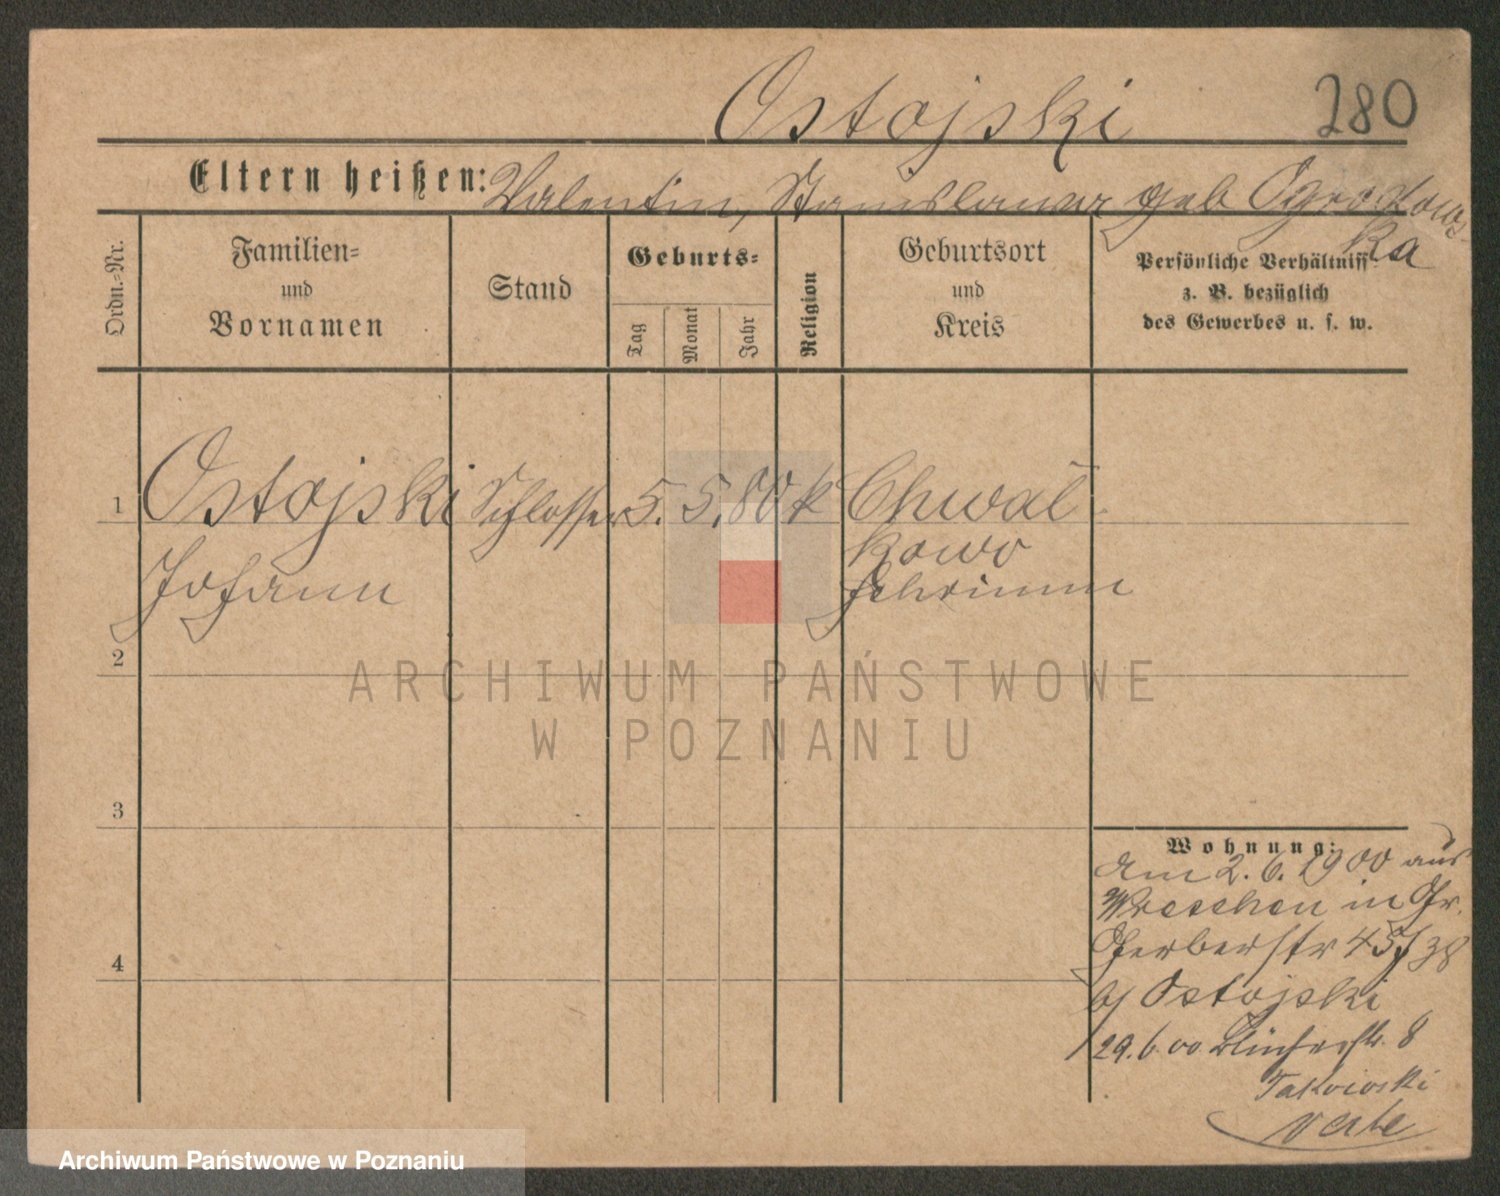 Ostojski 280
Eltern heißen: Valentin, Stanislawa geb Ogrodows-
ka
Ordn.-Nr.
Familien-
und
Vornamen
Stand
Geburts-
Tag
Monat
Jahr
Religion
Geburtsort
und
Kreis
Persönliche Verhältniss-
z. B. bezüglich
des Gewerbes u. s. w.
1 Ostojski Schlosser 5. 5. 80 k Chwał-
kowo
Johann Schrimm
2
3
4
Wohnung:
Am 2.6.1900 aus
Wreschen in Gr.
Gerberstr 45
b/ Ostojski
29.6.00 Blücherstr. 8
verte
ARCHIWUM PAŃSTWOWE
W POZNANIU
Archiwum Państwowe w Poznaniu